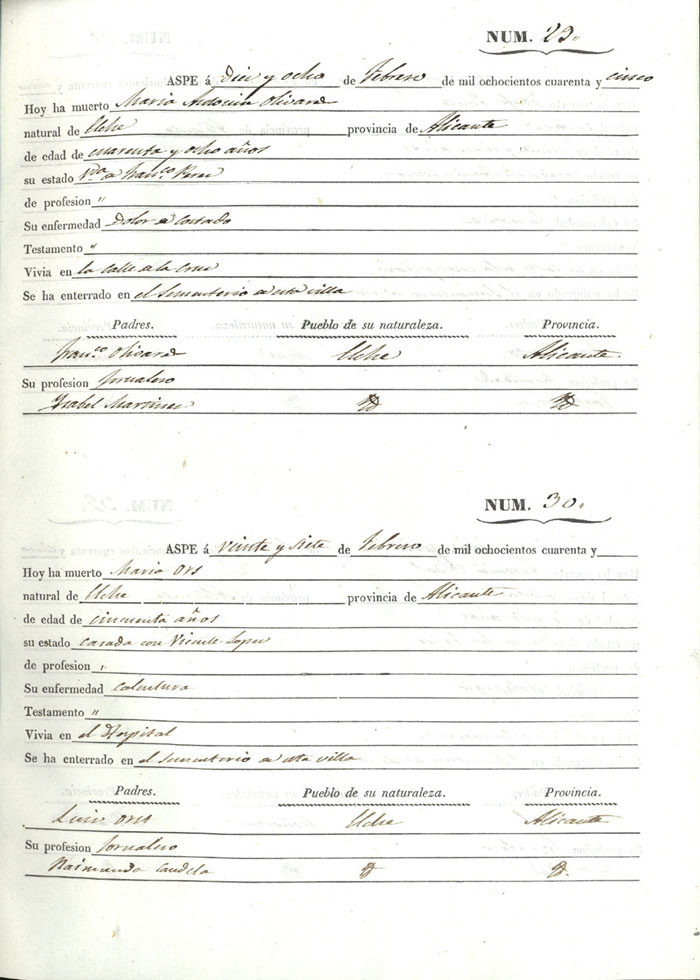 NUM. 29.
ASPE á Diez y ocho de Febrero de mil ochocientos cuarenta y cinco
Hoy ha muerto Maria Olivare
natural de Elche provincia de Alicante
de edad de cuarenta y ocho años
su estado Vda de Franco Perez
de profesion "
Su enfermedad Dolor de costado
Testamento "
Vivia en la calle de la Cruz
Se ha enterrado en el Sementerio de esta villa
Padres. Pueblo de su naturaleza. Provincia.
Franco Olivare Elche Alicante.
Su profesion Jornalero
Ysabel Martinez
NUM. 30.
ASPE á veinte y siete de Febrero de mil ochocientos cuarenta y
Hoy ha muerto Maria Ors
natural de Elche provincia de Alicante
de edad de cincuenta años
su estado casada con Vicente Lopez
de profesion "
Su enfermedad calentura
Testamento "
Vivia en el Hospital
Se ha enterrado en el Sementerio de esta villa
Padres. Pueblo de su naturaleza. Provincia.
Luis Ors Elche Alicante
Su profesion Jornalero
Raimunda Candela